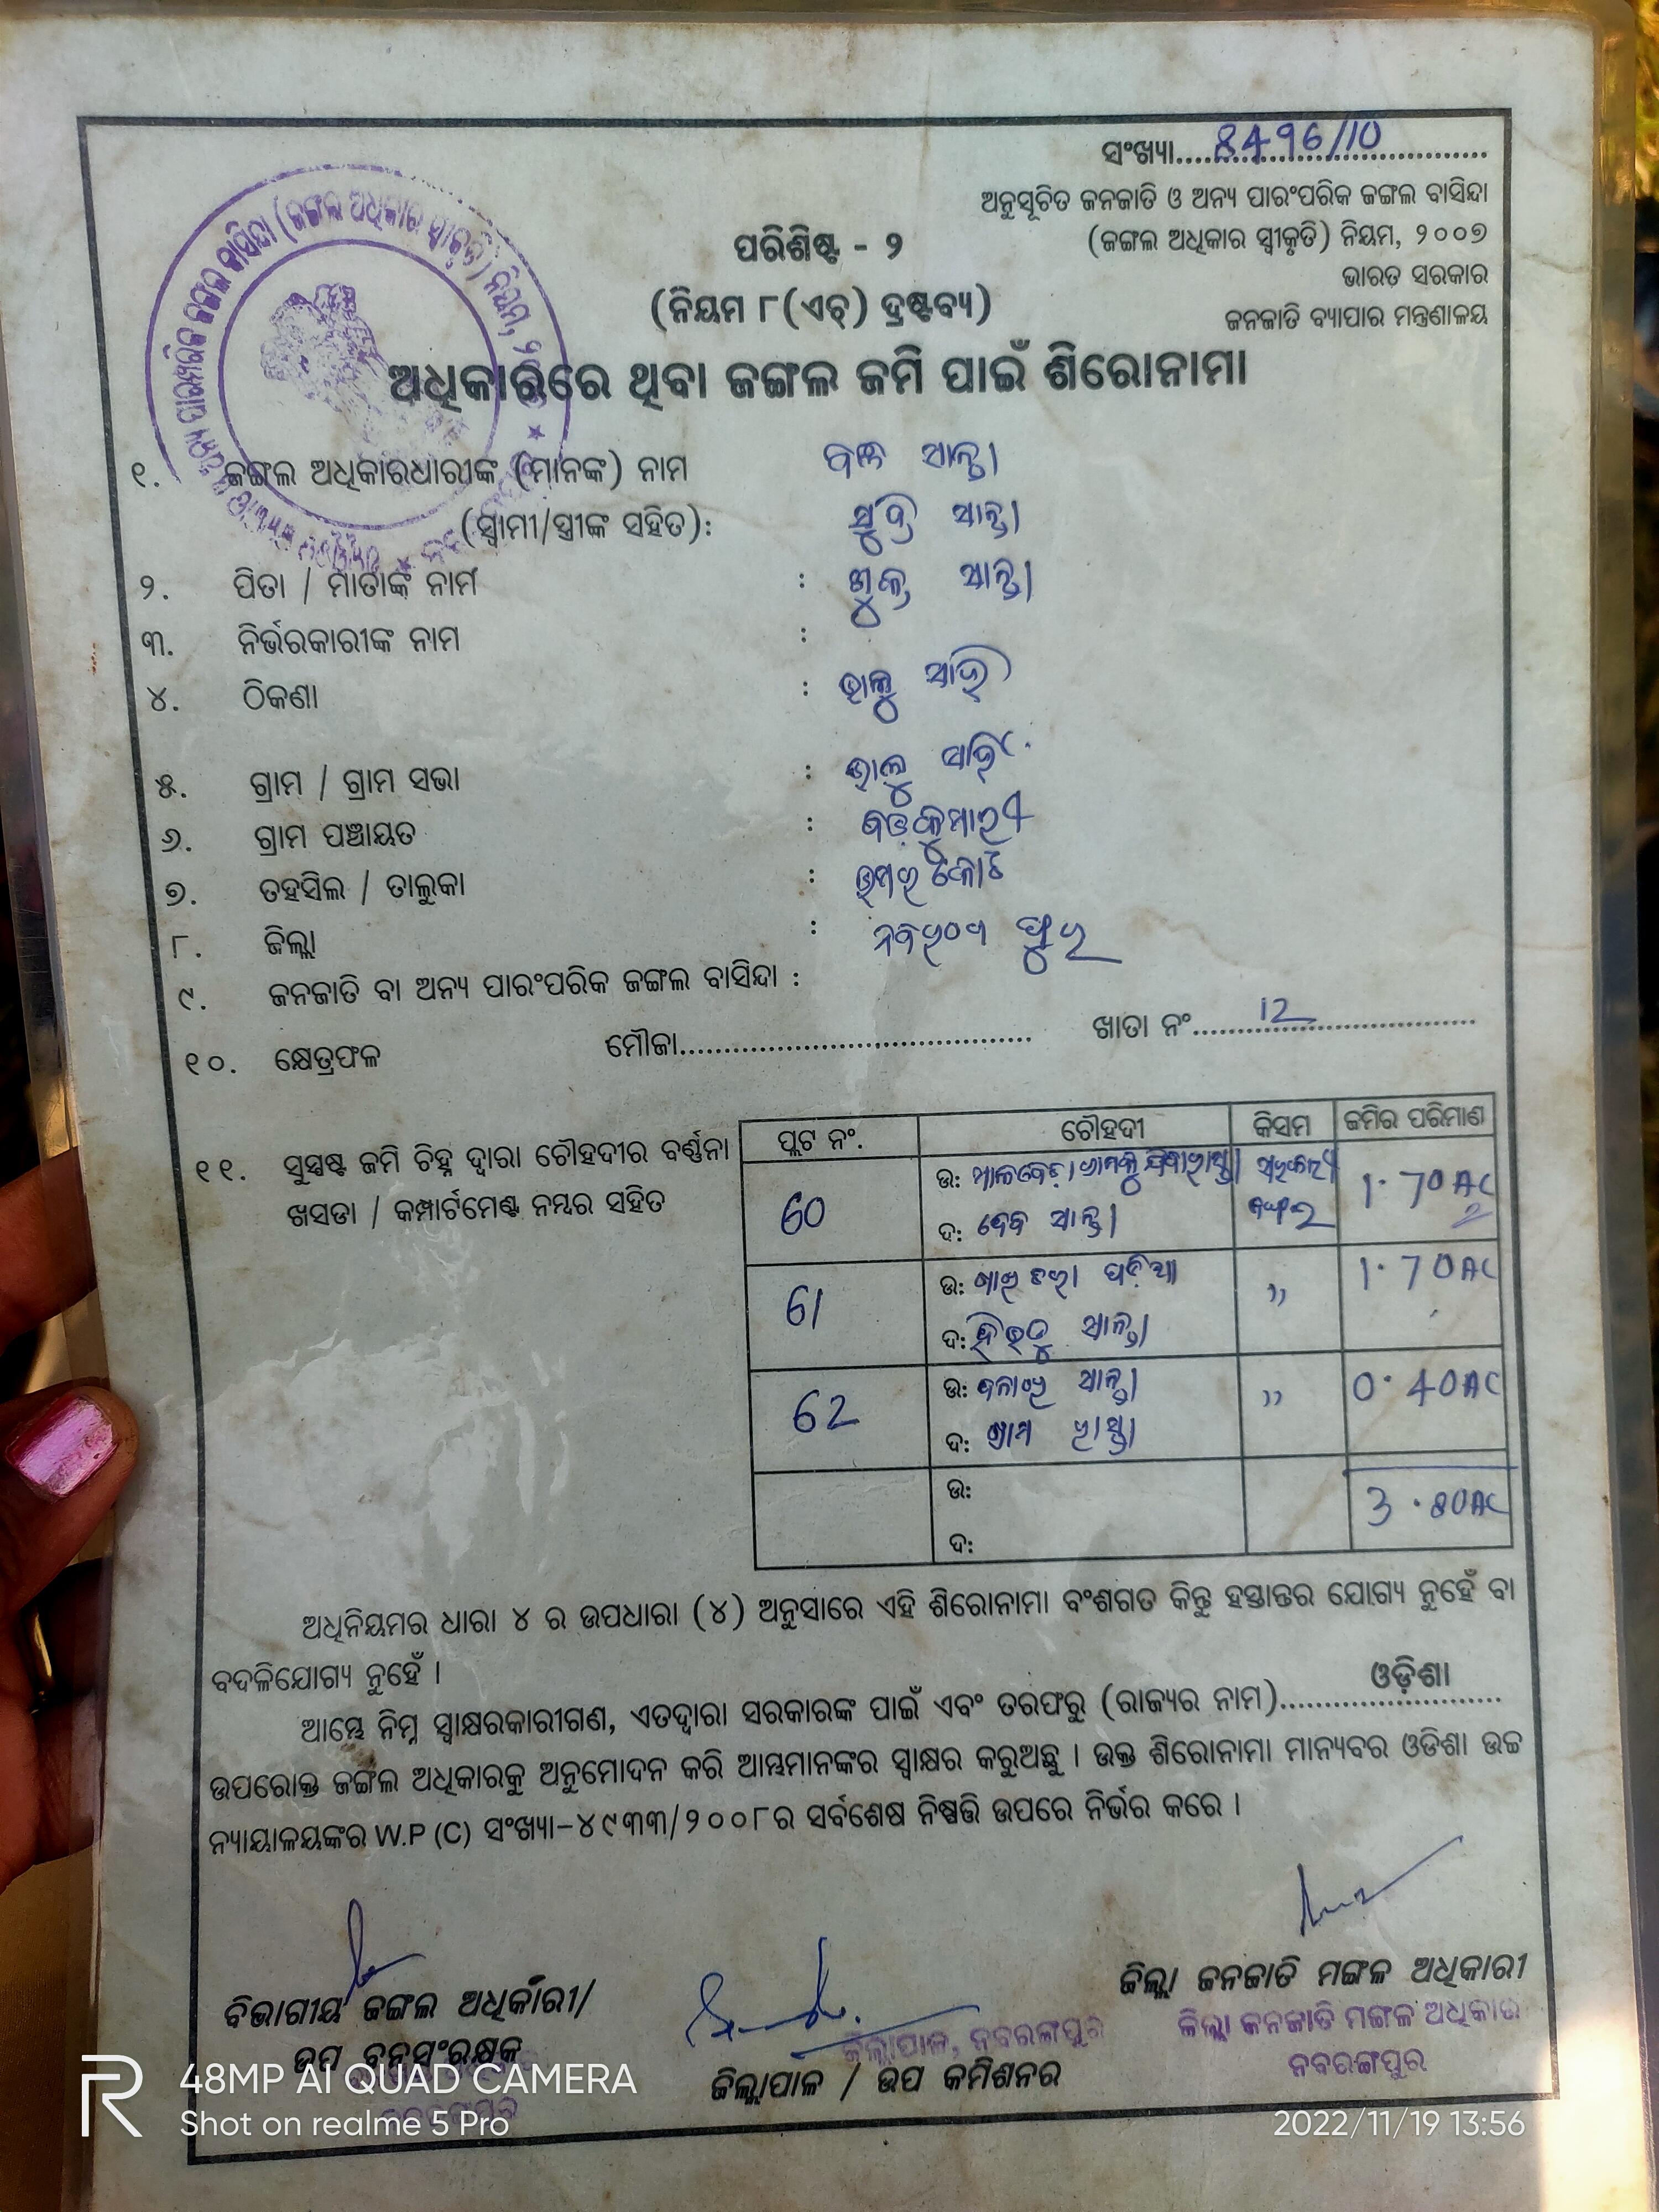 ସଂଖ୍ୟା....8496/10....
ଅନୁସୂଚିତ ଜନଜାତି ଓ ଅନ୍ୟ ପାରଂପରିକ ଜଙ୍ଗଲ ବାସିନ୍ଦା
(ଜଙ୍ଗଲ ଅଧିକାର ସ୍ୱୀକୃତି) ନିୟମ, ୨୦୦୭
ଭାରତ ସରକାର
ଜନଜାତି ବ୍ୟାପାର ମନ୍ତ୍ରଣାଳୟ
ପରିଶିଷ୍ଟ - ୨
(ନିୟମ ୮(ଏଚ୍) ଦ୍ରଷ୍ଟବ୍ୟ)
ଅଧିକାରରେ ଥିବା ଜଙ୍ଗଲ ଜମି ପାଇଁ ଶିରୋନାମା
୧. ଜଙ୍ଗଲ ଅଧିକାରଧାରୀଙ୍କ (ମାନଙ୍କ) ନାମ ସାନ୍ତା
(ସ୍ୱାମୀ/ସ୍ତ୍ରୀଙ୍କ ସହିତ): ସାନ୍ତା
୨. ପିତା / ମାତାଙ୍କ ନାମ : ସାନ୍ତା
୩. ନିର୍ଭରକାରୀଙ୍କ ନାମ :
୪. ଠିକଣା :
୫. ଗ୍ରାମ / ଗ୍ରାମ ସଭା :
୬. ଗ୍ରାମ ପଞ୍ଚାୟତ : ବଡ଼କୁମାରୀ
୭. ତହସିଲ / ତାଲୁକା : ଉମରକୋଟ
୮. ଜିଲ୍ଲା : ନବରଂଗପୁର
୯. ଜନଜାତି ବା ଅନ୍ୟ ପାରଂପରିକ ଜଙ୍ଗଲ ବାସିନ୍ଦା :
୧୦. କ୍ଷେତ୍ରଫଳ ମୌଜା........................ ଖାତା ନଂ.....12.....
୧୧. ସୁସ୍ପଷ୍ଟ ଜମି ଚିହ୍ନ ଦ୍ୱାରା ଚୌହଦୀର ବର୍ଣ୍ଣନା
ଖସଡା / କମ୍ପାର୍ଟମେଣ୍ଟ ନମ୍ବର ସହିତ
ପ୍ଲଟ ନଂ. ଚୌହଦୀ କିସମ ଜମିର ପରିମାଣ
60 ଉ: 1.70 AC
ଦ: ଦେବ ସାନ୍ତା
61 ଉ: ପଡ଼ିଆ ,, 1.70 AC
ଦ: ସାନ୍ତା
62 ଉ: ସାନ୍ତା ,, 0.40 AC
ଦ: ଗ୍ରାମ ରାସ୍ତା
ଉ: 3.80 AC
ଦ:
ଅଧିନିୟମର ଧାରା ୪ ର ଉପଧାରା (୪) ଅନୁସାରେ ଏହି ଶିରୋନାମା ବଂଶଗତ କିନ୍ତୁ ହସ୍ତାନ୍ତର ଯୋଗ୍ୟ ନୁହେଁ ବା
ବଦଳିଯୋଗ୍ୟ ନୁହେଁ ।
ଆମ୍ଭେ ନିମ୍ନ ସ୍ୱାକ୍ଷରକାରୀଗଣ, ଏତଦ୍ୱାରା ସରକାରଙ୍କ ପାଇଁ ଏବଂ ତରଫରୁ (ରାଜ୍ୟର ନାମ)....ଓଡ଼ିଶା....
ଉପରୋକ୍ତ ଜଙ୍ଗଲ ଅଧିକାରକୁ ଅନୁମୋଦନ କରି ଆମ୍ଭମାନଙ୍କର ସ୍ୱାକ୍ଷର କରୁଅଛୁ । ଉକ୍ତ ଶିରୋନାମା ମାନ୍ୟବର ଓଡିଶା ଉଚ୍ଚ
ନ୍ୟାୟାଳୟଙ୍କର W.P (C) ସଂଖ୍ୟା-୪୯୩୩/୨୦୦୮ର ସର୍ବଶେଷ ନିଷ୍ପତ୍ତି ଉପରେ ନିର୍ଭର କରେ ।
ବିଭାଗୀୟ ଜଙ୍ଗଲ ଅଧିକାରୀ/
ଉପ ବନସଂରକ୍ଷକ
ଜିଲ୍ଲାପାଳ, ନବରଙ୍ଗପୁର
ଜିଲ୍ଲାପାଳ / ଉପ କମିଶନର
ଜିଲ୍ଲା ଜନଜାତି ମଙ୍ଗଳ ଅଧିକାରୀ
ଜିଲ୍ଲା ଜନଜାତି ମଙ୍ଗଳ ଅଧିକାରୀ
ନବରଙ୍ଗପୁର
48MP AI QUAD CAMERA
Shot on realme 5 Pro
2022/11/19 13:56